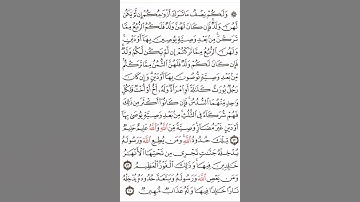 ۞ وَلَكُمْ نِصْفُ مَا تَرَكَ أَزْوَٰجُكُمْ إِن لَّمْ يَكُن
لَّهُنَّ وَلَدٌ فَإِن كَانَ لَهُنَّ وَلَدٌ فَلَكُمُ ٱلرُّبُعُ مِمَّا
تَرَكْنَ مِنۢ بَعْدِ وَصِيَّةٍ يُوصِينَ بِهَآ أَوْ دَيْنٍ
وَلَهُنَّ ٱلرُّبُعُ مِمَّا تَرَكْتُمْ إِن لَّمْ يَكُن لَّكُمْ وَلَدٌ
فَإِن كَانَ لَكُمْ وَلَدٌ فَلَهُنَّ ٱلثُّمُنُ مِمَّا تَرَكْتُم
مِّنۢ بَعْدِ وَصِيَّةٍ تُوصُونَ بِهَآ أَوْ دَيْنٍ وَإِن كَانَ
رَجُلٌ يُورَثُ كَلَٰلَةً أَوِ ٱمْرَأَةٌ وَلَهُۥٓ أَخٌ أَوْ أُخْتٌ فَلِكُلِّ
وَٰحِدٍ مِّنْهُمَا ٱلسُّدُسُ فَإِن كَانُوٓا۟ أَكْثَرَ مِن ذَٰلِكَ
فَهُمْ شُرَكَآءُ فِى ٱلثُّلُثِ مِنۢ بَعْدِ وَصِيَّةٍ يُوصَىٰ بِهَآ
أَوْ دَيْنٍ غَيْرَ مُضَآرٍّ وَصِيَّةً مِّنَ ٱللَّهِ وَٱللَّهُ عَلِيمٌ حَلِيمٌ
١٢ تِلْكَ حُدُودُ ٱللَّهِ وَمَن يُطِعِ ٱللَّهَ وَرَسُولَهُۥ
يُدْخِلْهُ جَنَّٰتٍ تَجْرِى مِن تَحْتِهَا ٱلْأَنْهَٰرُ
خَٰلِدِينَ فِيهَا وَذَٰلِكَ ٱلْفَوْزُ ٱلْعَظِيمُ ١٣
وَمَن يَعْصِ ٱللَّهَ وَرَسُولَهُۥ وَيَتَعَدَّ حُدُودَهُۥ يُدْخِلْهُ
نَارًا خَٰلِدًا فِيهَا وَلَهُۥ عَذَابٌ مُّهِينٌ ١٤